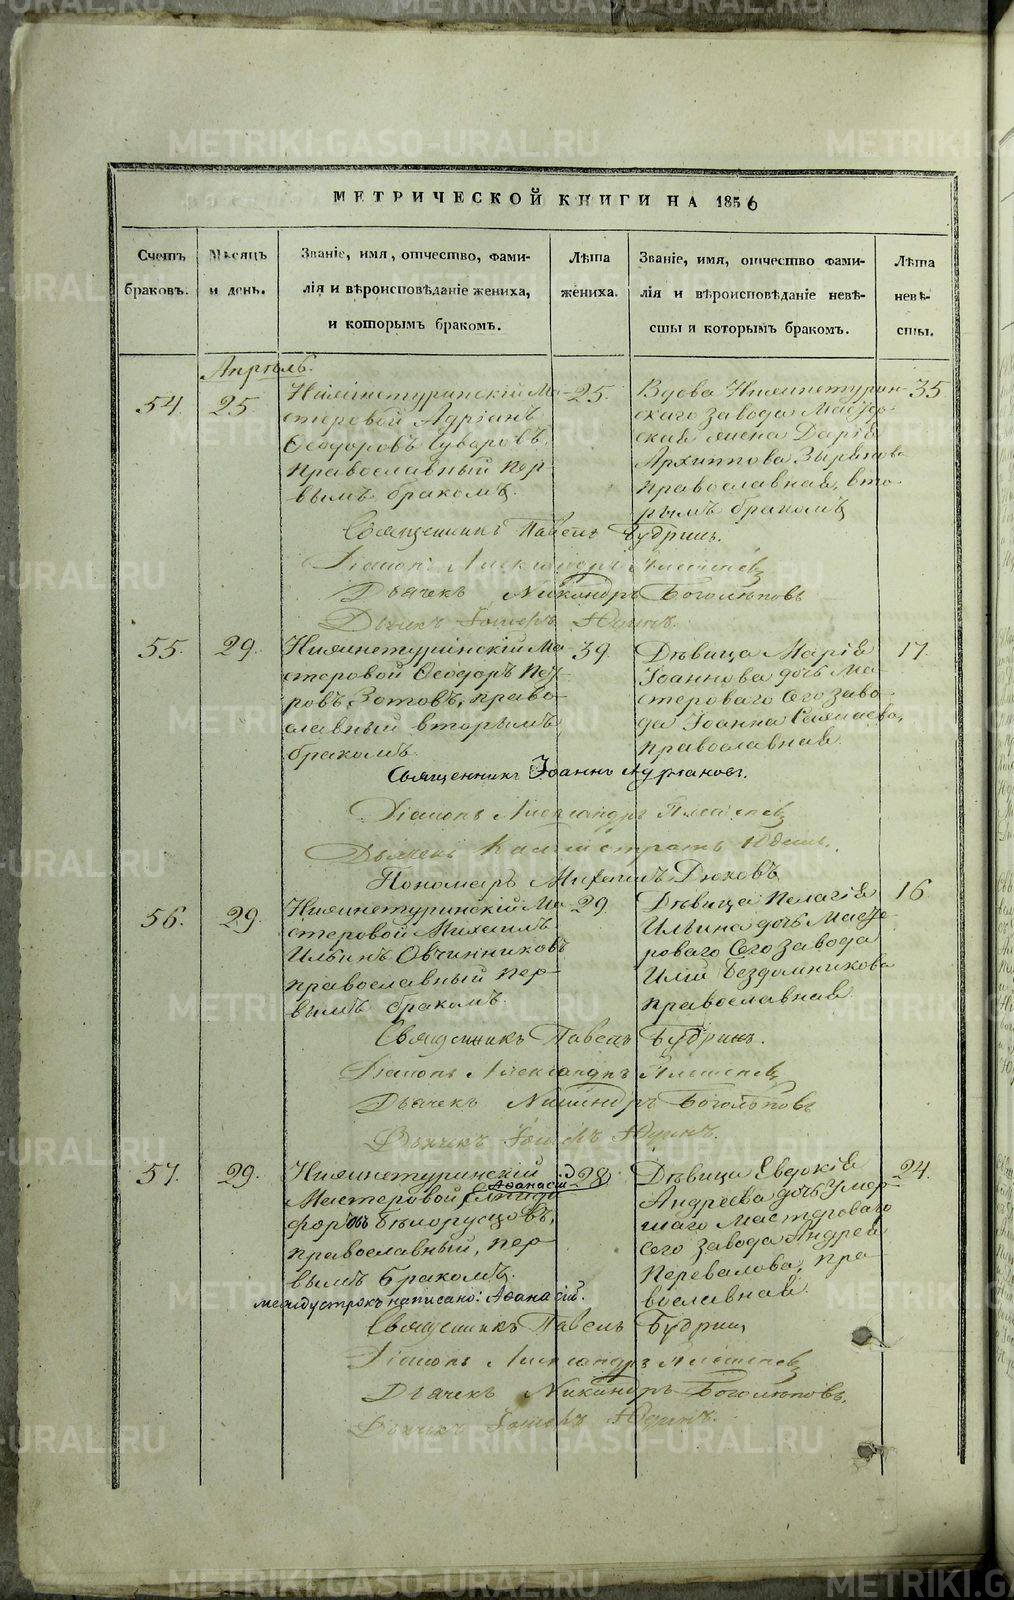 МЕТРИЧЕСКОЙ КНИГИ НА 1856
Счетъ браковъ.
Мѣсяцъ и день.
Званіе, имя, отчество, фами-
лія и вѣроисповѣданіе жениха,
и которымъ бракомъ.
Лѣта жениха.
Званіе, имя, отчество фами-
лія и вѣроисповѣданіе невѣ-
сты и которымъ бракомъ.
Лѣта невѣ-
сты.
Апрѣль.
54. 25
Нижнетуринскій Ма-
стеровой Адріанъ
Ѳеодоровъ Суворовъ,
православный пер-
вымъ бракомъ.
25.
Вдова Нижнетурин-
скаго завода Мастер-
ская жена Дарія
Архипова Зырянова
православная, вто-
рымъ бракомъ
35
Священникъ Павелъ Бубринъ.
Діаконъ Александръ
Дьячекъ Никандръ Боголѣповъ
Дьячекъ Юдинъ.
55. 29.
Нижнетуринскій Ма-
стеровой Ѳеодоръ Пет-
ровъ Зотовъ, право-
славный вторымъ
бракомъ.
39.
Дѣвица Марія
Іоаннова дочь Ма-
стероваго сего заво-
да Іоанна
православная
17.
Священникъ Іоаннъ
Діаконъ Александръ
Дьячекъ Каллистратъ Юдинъ.
Пономарь Михаилъ Дюковъ
56. 29.
Нижнетуринскій Ма-
стеровой Михаилъ
Ильинъ Овчинниковъ
православный пер-
вымъ бракомъ.
29.
Дѣвица Пелагія
Ильина дочь Масте-
роваго сего завода
Иліи Бездомникова
православная
16
Священникъ Павелъ Бубринъ.
Діаконъ Александръ
Дьячекъ Никандръ Боголѣповъ
Дьячекъ Юдинъ.
57. 29.
Нижнетуринскій
Аѳанасій
Мастеровой
форовъ Бѣлорусцовъ,
православный, пер-
вымъ бракомъ.
междустрокъ написано: Аѳанасій.
28
Дѣвица Евдокія
Андреева дочь умер-
шаго Мастероваго
сего завода Андрея
Перевалова, пра-
вославная.
24.
Священникъ Павелъ Бубринъ
Діаконъ Александръ
Дьячекъ Никандръ Боголѣповъ,
Дьячекъ Юдинъ.
METRIKI.GASO-URAL.RU